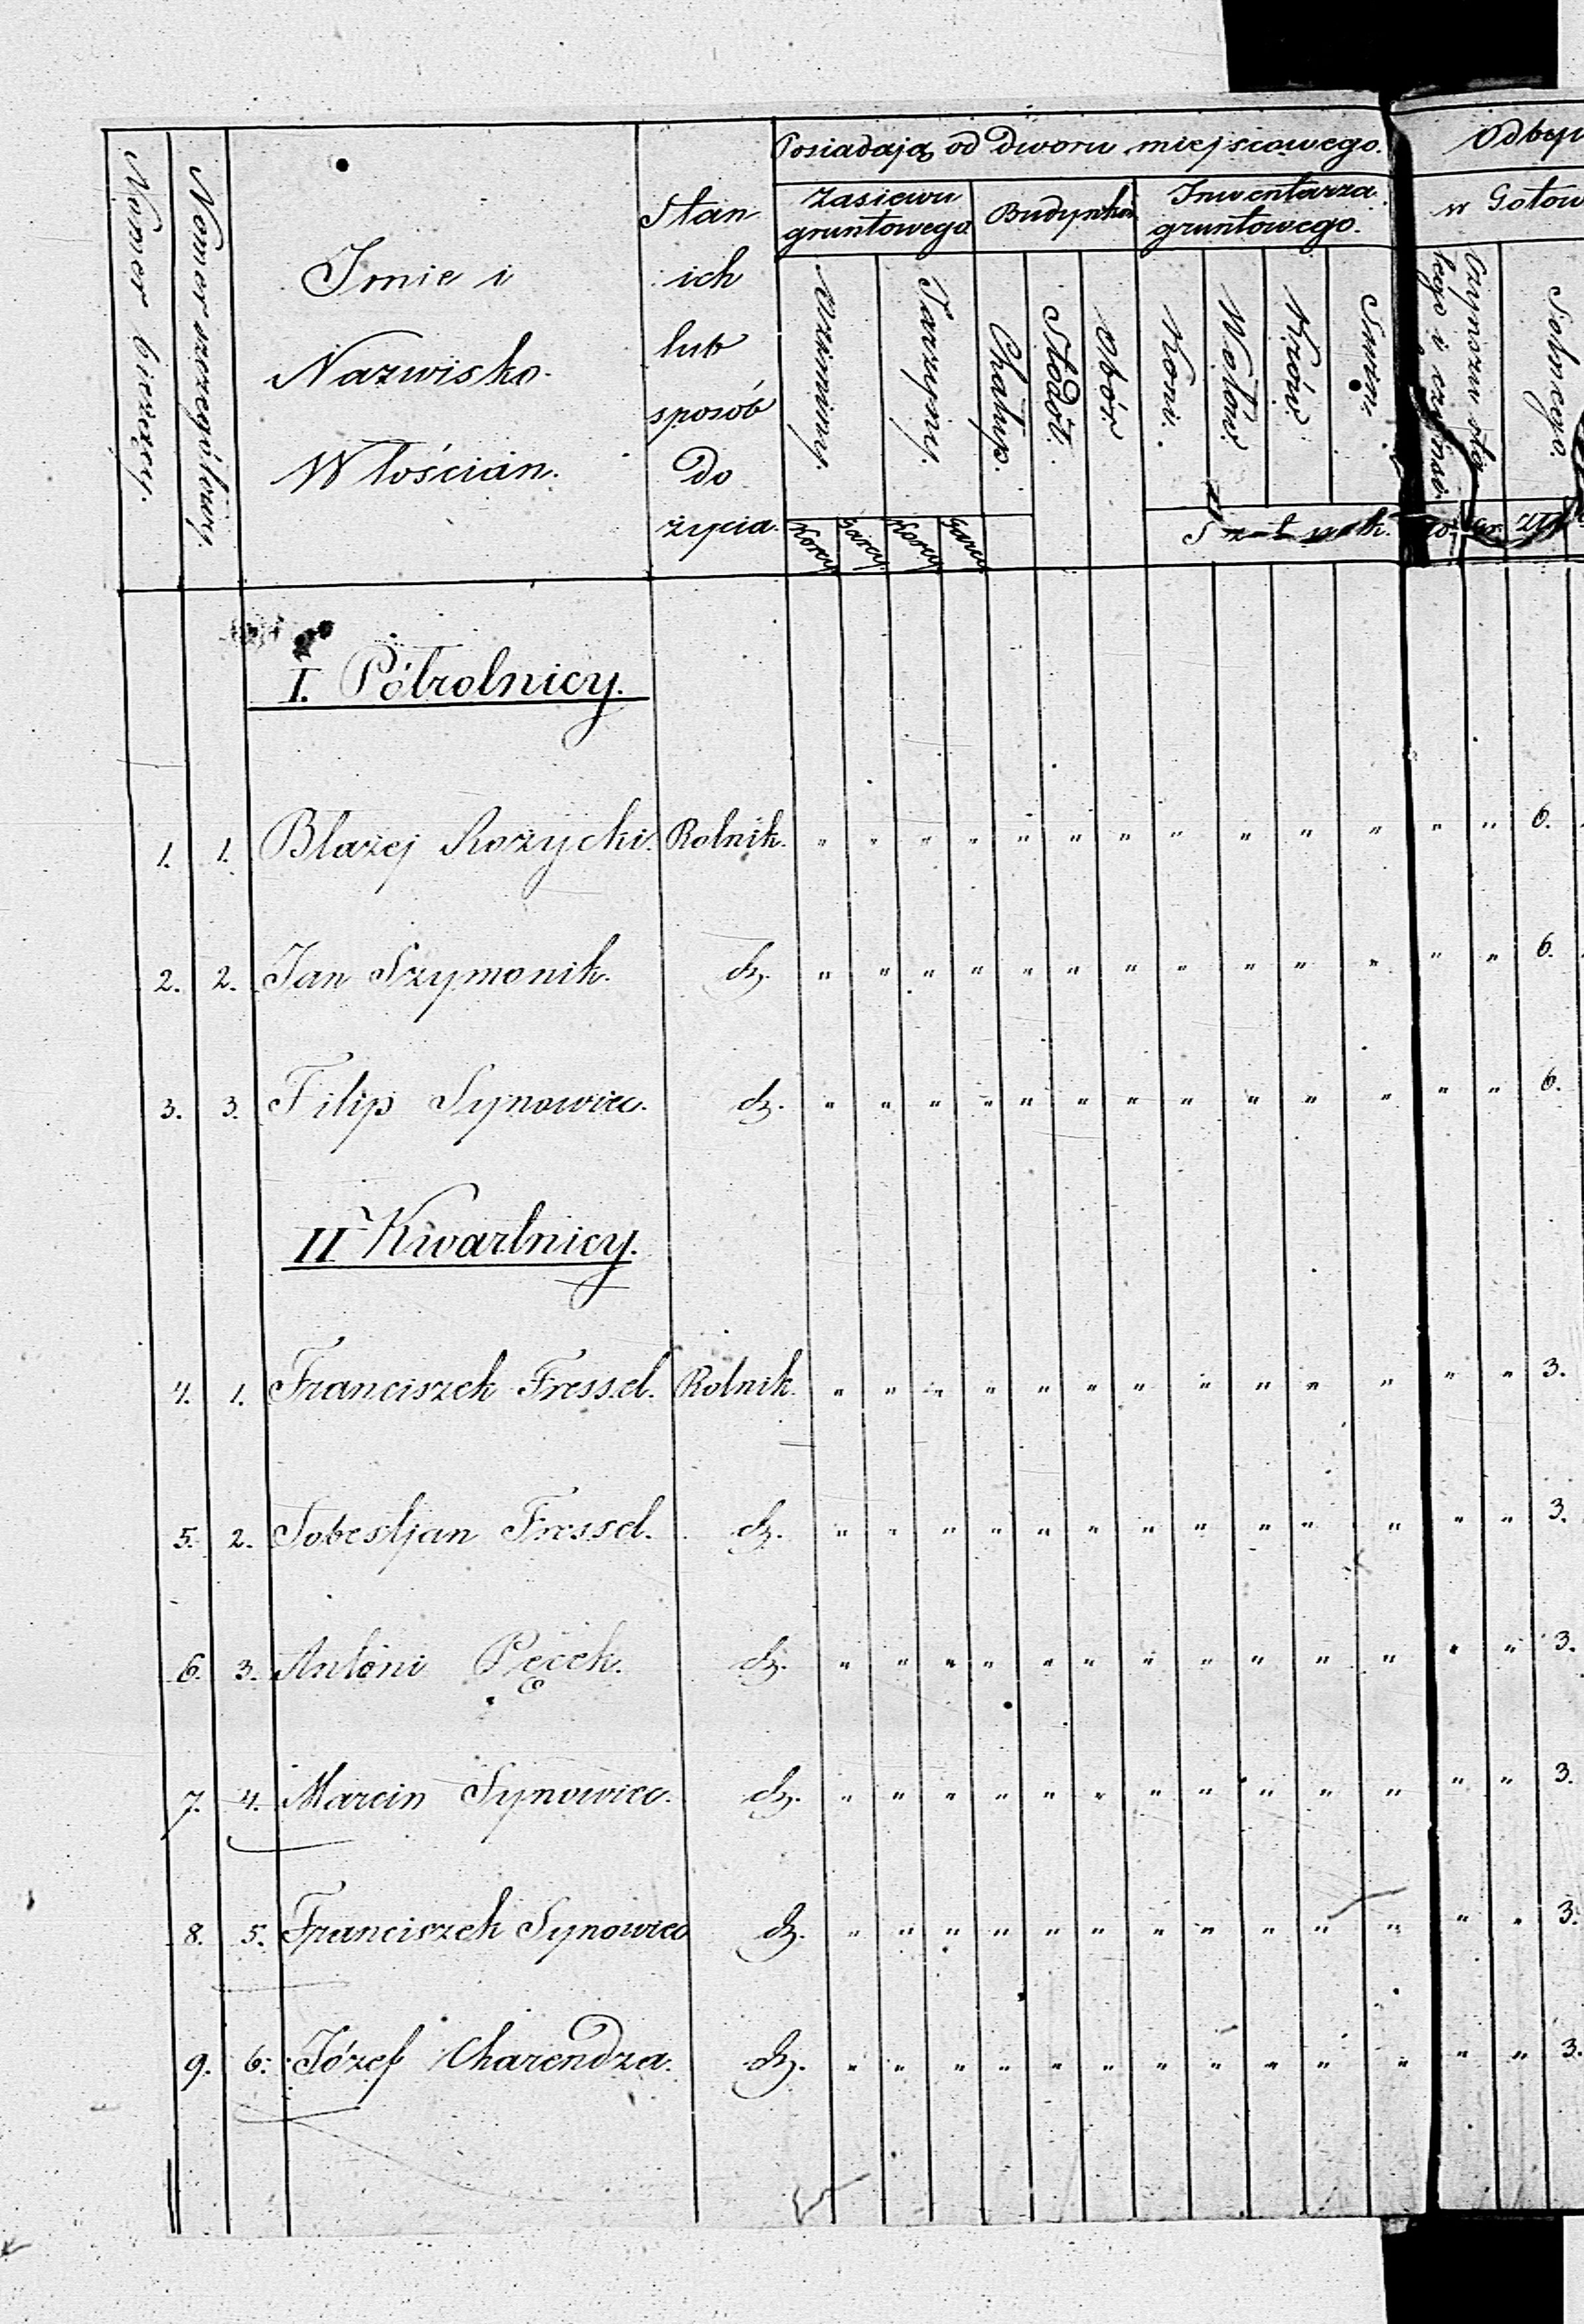 Posiadają od dworu miejscowego.
Zasiewu gruntowego
Budynków
Inwentarza gruntowego.
w Gotow
Numer bieżący.
Numer szczegółowy.
Imie i
Nazwisko
Włościan.
Stan
ich
lub
sposób
do
życia.
Oziminy.
Jarzyny.
Chałup.
Stodół.
Obór.
Koni.
Wołów.
Krów.
Świn.
Czynszu
Solnego.
Korcy Garcy Korcy Garcy
Sztuk.
I. Półrolnicy.
1. 1. Błażej Rożycki. Rolnik. " " " " " " " " " " " " " 6.
2. 2. Jan Szymonik. dt. " " " " " " " " " " " " " 6.
3. 3. Filip Synowiec. dt. " " " " " " " " " " " " " 6.
II Kwartnicy.
4. 1. Franciszek Fressel. Rolnik. " " " " " " " " " " " " " 3.
5. 2. Sobestjan Fressel. dt. " " " " " " " " " " " " " 3.
6. 3. Antoni Pęcek. dt. " " " " " " " " " " " " " 3.
7. 4. Marcin Synowiec. dt. " " " " " " " " " " " " " 3.
8. 5. Franciszek Synowiec dt. " " " " " " " " " " " " " 3.
9. 6. Józef Charendza. dt. " " " " " " " " " " " " " 3.